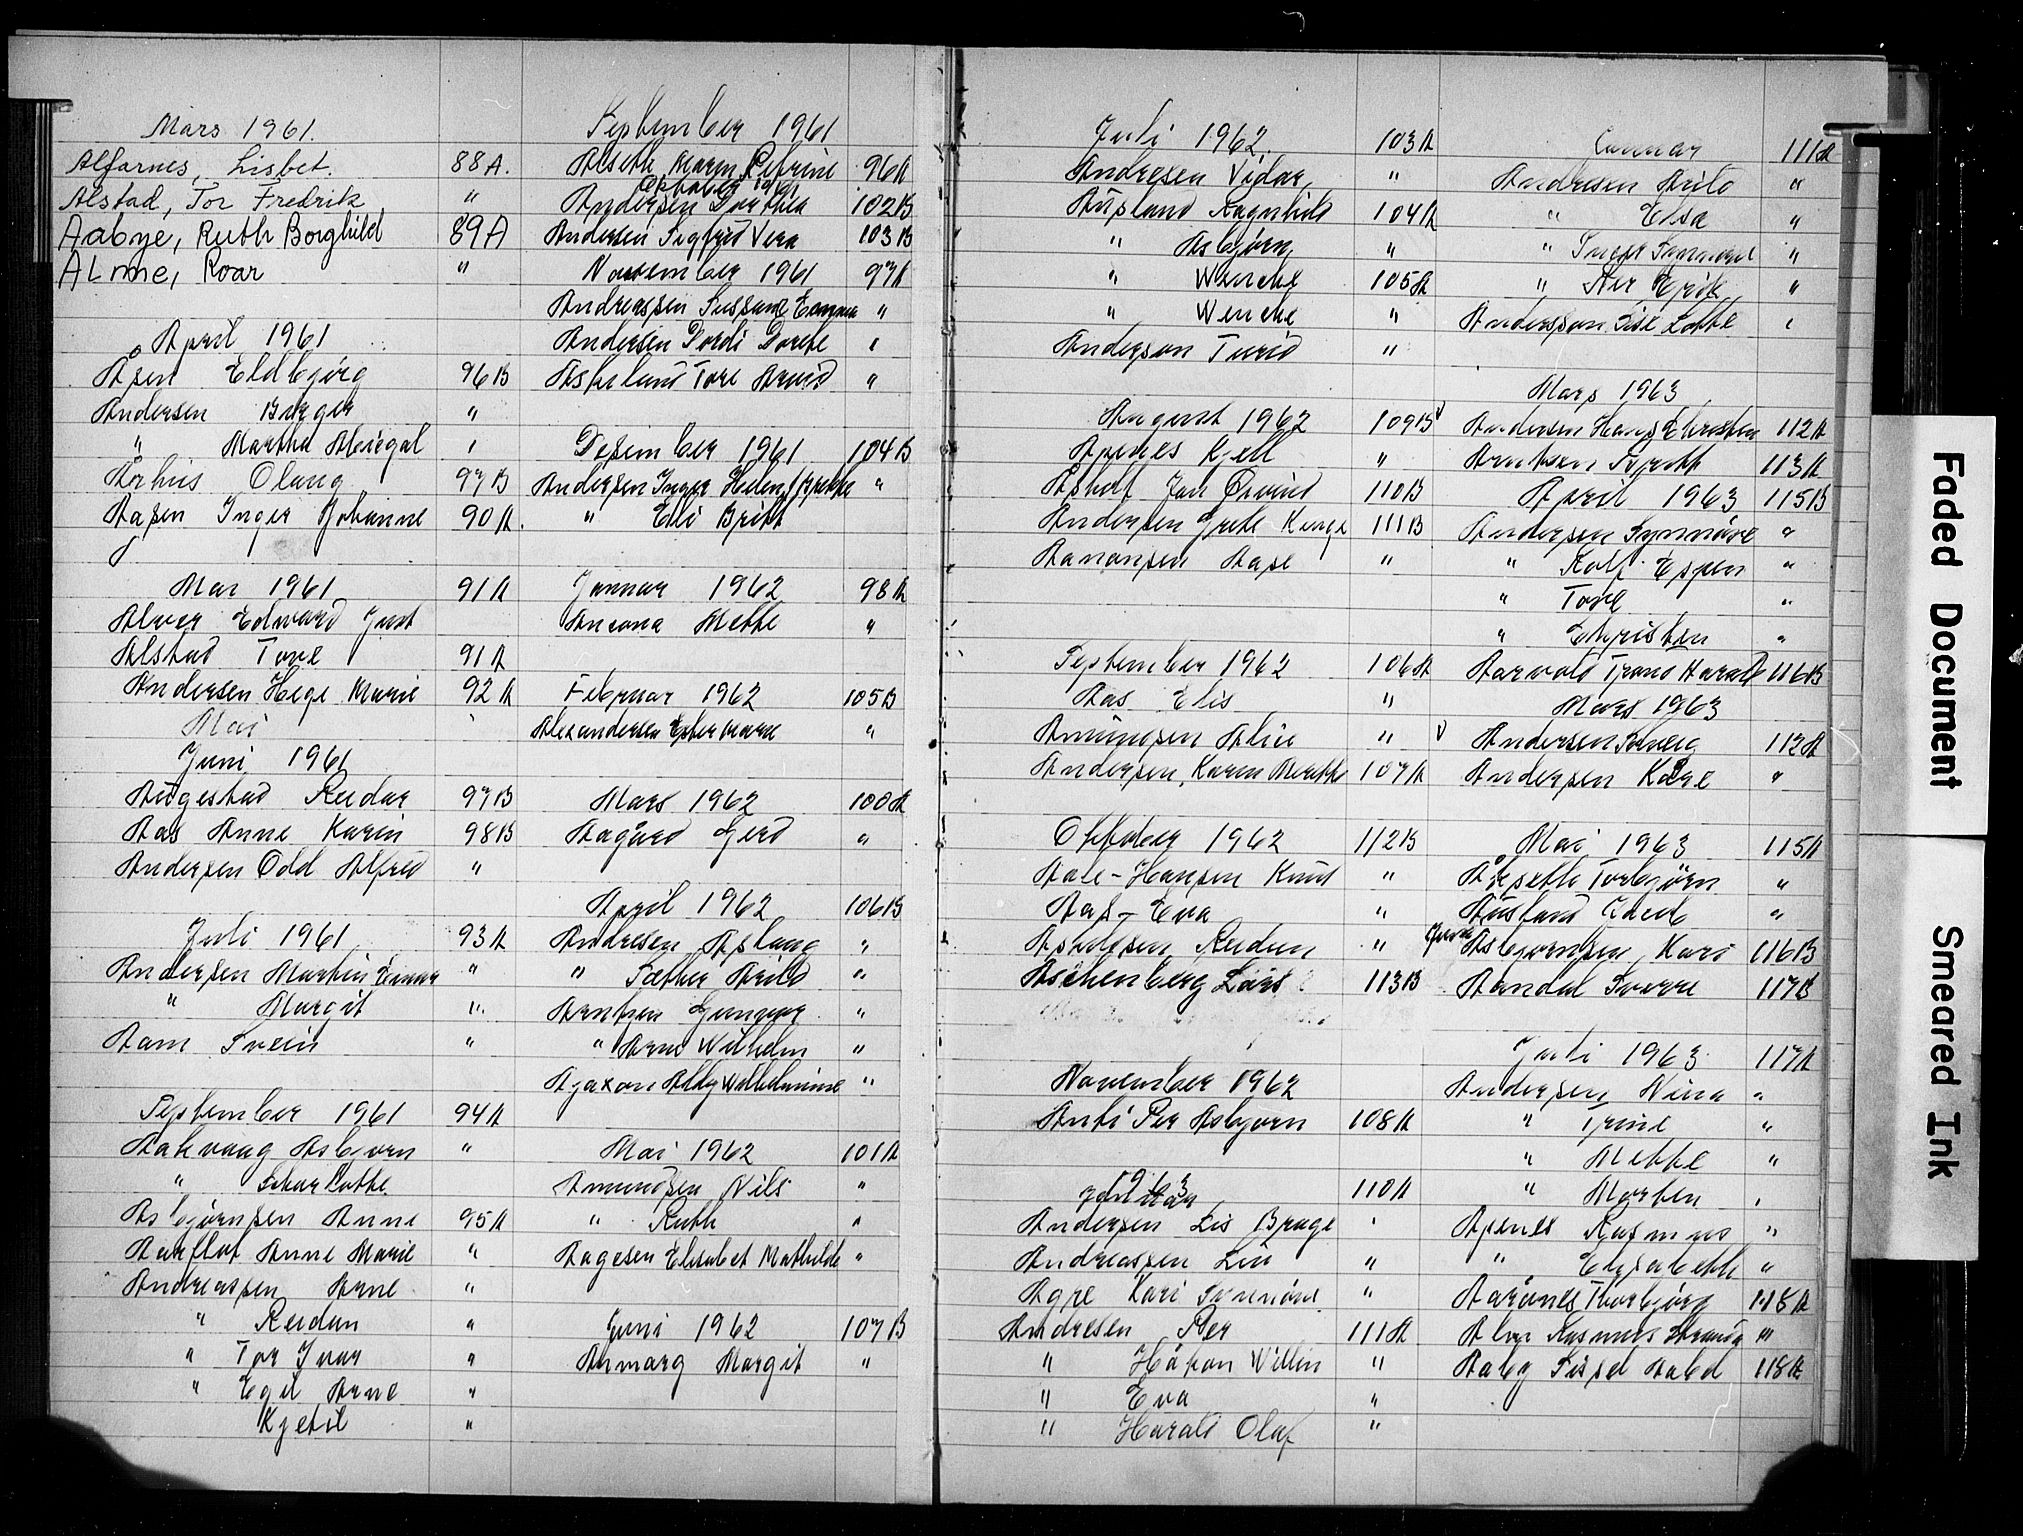 Mars 1961.
Alfarnes, Lisbet. 88 A.
Alstad, Tor Fredrik "
Aabye, Ruth Borghild 89 A
Alme, Roar "
April 1961
Åsen Eldbjørg 96 B
Andersen Birger "
" Martha Abigal "
Århus Olaug 97 B
Aasen Inger Johanne 90 A.
Mai 1961 91 A
Alver Edward Just
Alstad Tove 91 A
Andersen Hege Marie 92 A
Mai
Juni 1961
Augestad Reidar 97 B
Aas Anne Karin 98 B
Andersen Odd Alfred "
Juli 1961 93 A
Andersen Martin Einar "
" Margit "
Aam Svein "
September 1961 94 A
Aakvaag Asbjørn "
" Lotte
Asbjørnsen Anne 95 A
Aarflot Anne Marie "
Andreassen Arne "
" Reidun "
" Tor Ivar "
" Egil Arne "
Kjetil "
September 1961
Alseth Maren Petrine 96 A
Oktober 1961
Andersen Dorthea 102 B
Andersen Sigfrid Vera 103 B
November 1961 97 A
Andreassen Sussane Emma "
Andersen Dordi Dorthe "
Askeland Tore Arvid "
Desember 1961 104 B
Andersen Inger Helen "
" Eli Britt
Januar 1962 98 A
Ancona Mette "
Februar 1962 105 B
Alexandersen Ester Marie "
Mars 1962 100 A
Aagård Gerd "
April 1962 106 B
Andresen Aslaug "
" Sæther Arild "
Arntzen Gunvor "
" Arne Wilhelm "
Ajaxon Aldy Wilhelmine "
Mai 1962 101 A
Amundsen Nils "
" Ruth "
Aagesen Elisabet Mathilde "
Juni 1962 107 B
Anmarg Margit "
Juli 1962. 103 A
Andresen Vidar "
Ausland Ragnhild 104 A
" Asbjørn "
" Wenche 105 A
" Wenche "
Anderson Turid "
August 1962 109 B
Apenes Kjell "
Asholt Jan Øivind 110 B
Andersen Grete 111 B
Aanonsen Aase "
September 1962 106 A
Aas Elis "
Amundsen Alice "
Andersen, Karen Merethe 107 A
Oktober 1962 112 B
Aale-Hansen Knut "
Aas- Eva "
Asholdsen Reidun "
Aschenberg Lars 113 B
November 1962
Anti Per Asbjørn 108 A
1963
Januar 110 A
Andersen Lis Brage "
Andreassen Liv "
Agre Kari Synnöve "
Andresen Per 111 A
" Håkon Willin "
" Eva "
" Harald Olaf "
Januar 111 A
Andresen Arild "
" Elsa "
" Inger Synnøve "
" Per Eirik "
Anderssøn Lise Lotte "
Mars 1963
Andersen Hans Christen 112 A
Arntzen Synøve 113 A
April 1963 115 B
Andersen Synnöve "
" Rolf Espen "
" Tove "
" Christen "
Aarvold Trond Harald 116 B
Mars 1963
Andersen Solveig 112 A
Andersen Kåre "
Mai 1963 115 A
Åkseth Torbjörn "
Ausland Jacob "
Juni Asbjørnsen, Kari 116 B
Aandal Sverre 117 B
Juli 1963 117 A
Andersen, Nina "
" Trine "
" Mette "
" Morten "
Apenes Rasmus "
" Elisabeth "
Aarånes Thorbjørg 118 A
Alvr Rasmus Strand "
Aaby Sissel Aabel 118 A
Faded Document
Smeared Ink